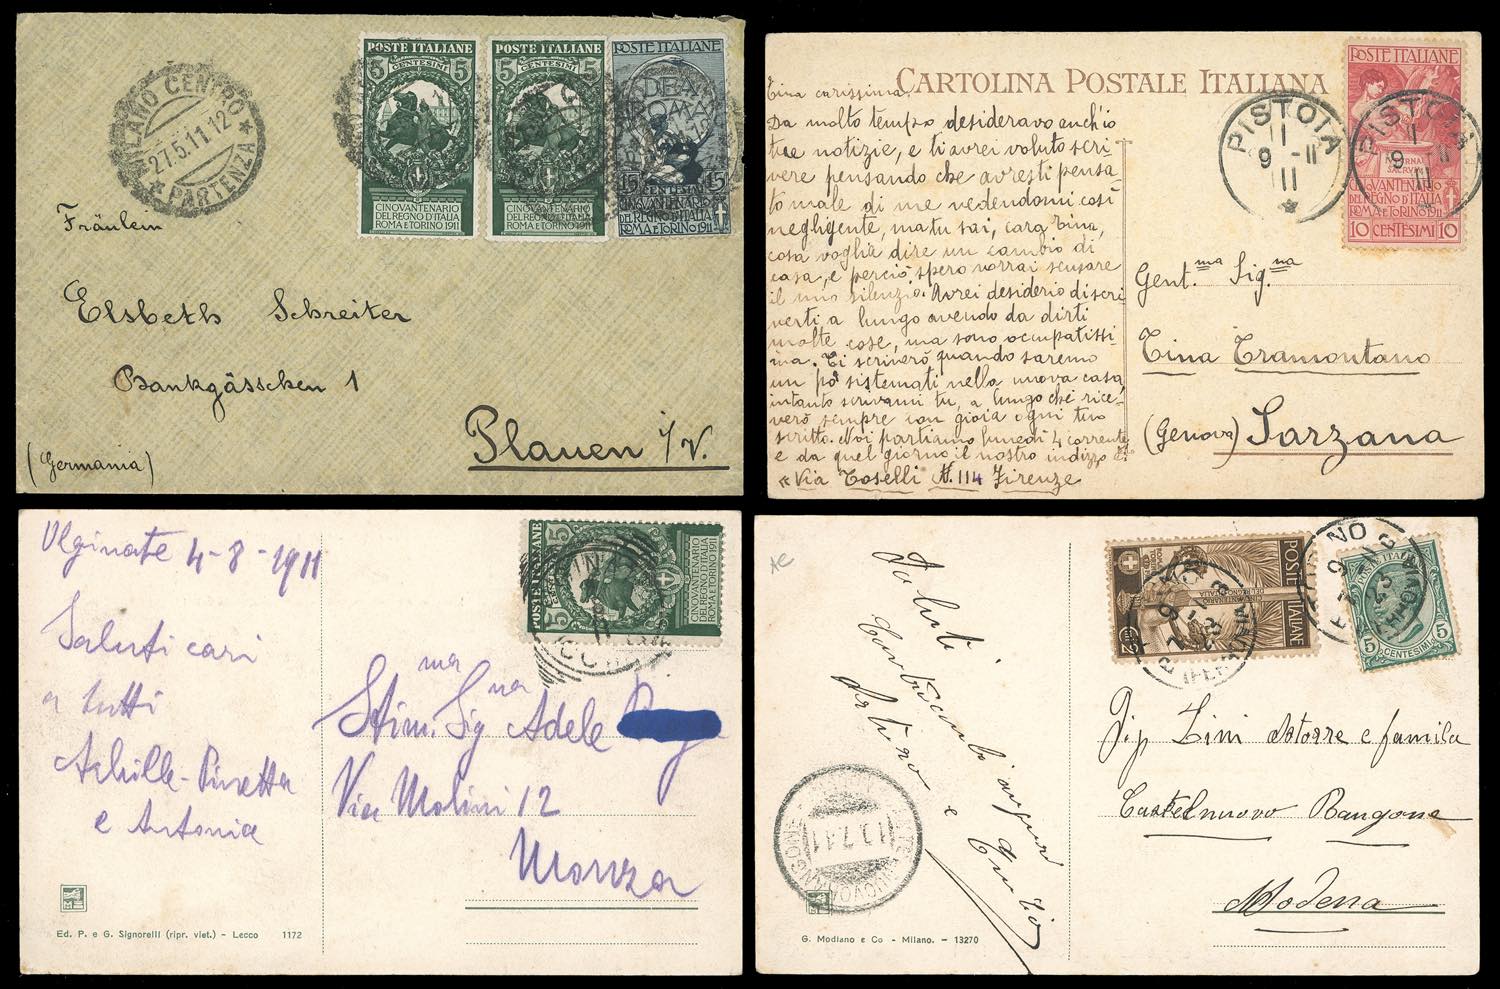 MILANO CENTRO
27.5.11.12
PARTENZA
POSTE ITALIANE
5 CENTESIMI 5
CINQVANTENARIO
DEL REGNO D'ITALIA
ROMA E TORINO 1911
POSTE ITALIANE
5 CENTESIMI 5
CINQVANTENARIO
DEL REGNO D'ITALIA
ROMA E TORINO 1911
POSTE ITALIANE
DEA ROMA
15 CENTESIMI 15
CINQVANTENARIO
DEL REGNO D'ITALIA
ROMA E TORINO 1911
Fräulein
Elsbeth Schreiter
Bankgässchen 1
Plauen i/V.
(Germania)
CARTOLINA POSTALE ITALIANA
POSTE ITALIANE
CINQVANTENARIO
DEL REGNO D'ITALIA
ROMA E TORINO 1911
10 CENTESIMI 10
PISTOIA
9 - 11
PISTOIA
9 - 11
Tina carissima,
Da molto tempo desideravo anch'io
tue notizie, e ti avrei voluto scri-
vere pensando che avresti pensa
to male di me vedendomi così
negligente, ma tu sai, cara Tina,
cosa voglia dire un cambio di
casa, e perciò spero vorrai scusare
il mio silenzio. Avrei desiderio di scri
verti a lungo avendo da dirti
molte cose, ma sono occupatissi-
ma. Ti scriverò quando saremo
un po' sistemati nella nuova casa,
intanto scrivimi tu, a lungo chè rice-
verò sempre con gioia ogni tuo
scritto. Noi partiamo lunedì 4 corrente
e da quel giorno il nostro indirizzo è:
« Via Toselli N. 114 Firenze
Gent.ma Sig.na
Tina Tramontano
(Genova) Sarzana
Olginate 4-8-1911
Saluti cari
a tutti
Achille - Pinetta
e Antonia
POSTE ITALIANE
5 5
CINQVANTENARIO
DEL REGNO D'ITALIA
ROMA E TORINO 1911
Stim.ma Sig.na Adele
Via Molini 12
Monza
Ed. P. e G. Signorelli (ripr. viet.) - Lecco 1172
AC
Saluti
Arturo e
POSTE ITALIANE
5 CENTESIMI 5
Sig Zini Astorre e famiglia
Castelnuovo Rangone
Modena
10.7.11
G. Modiano e Co - Milano. - 13270